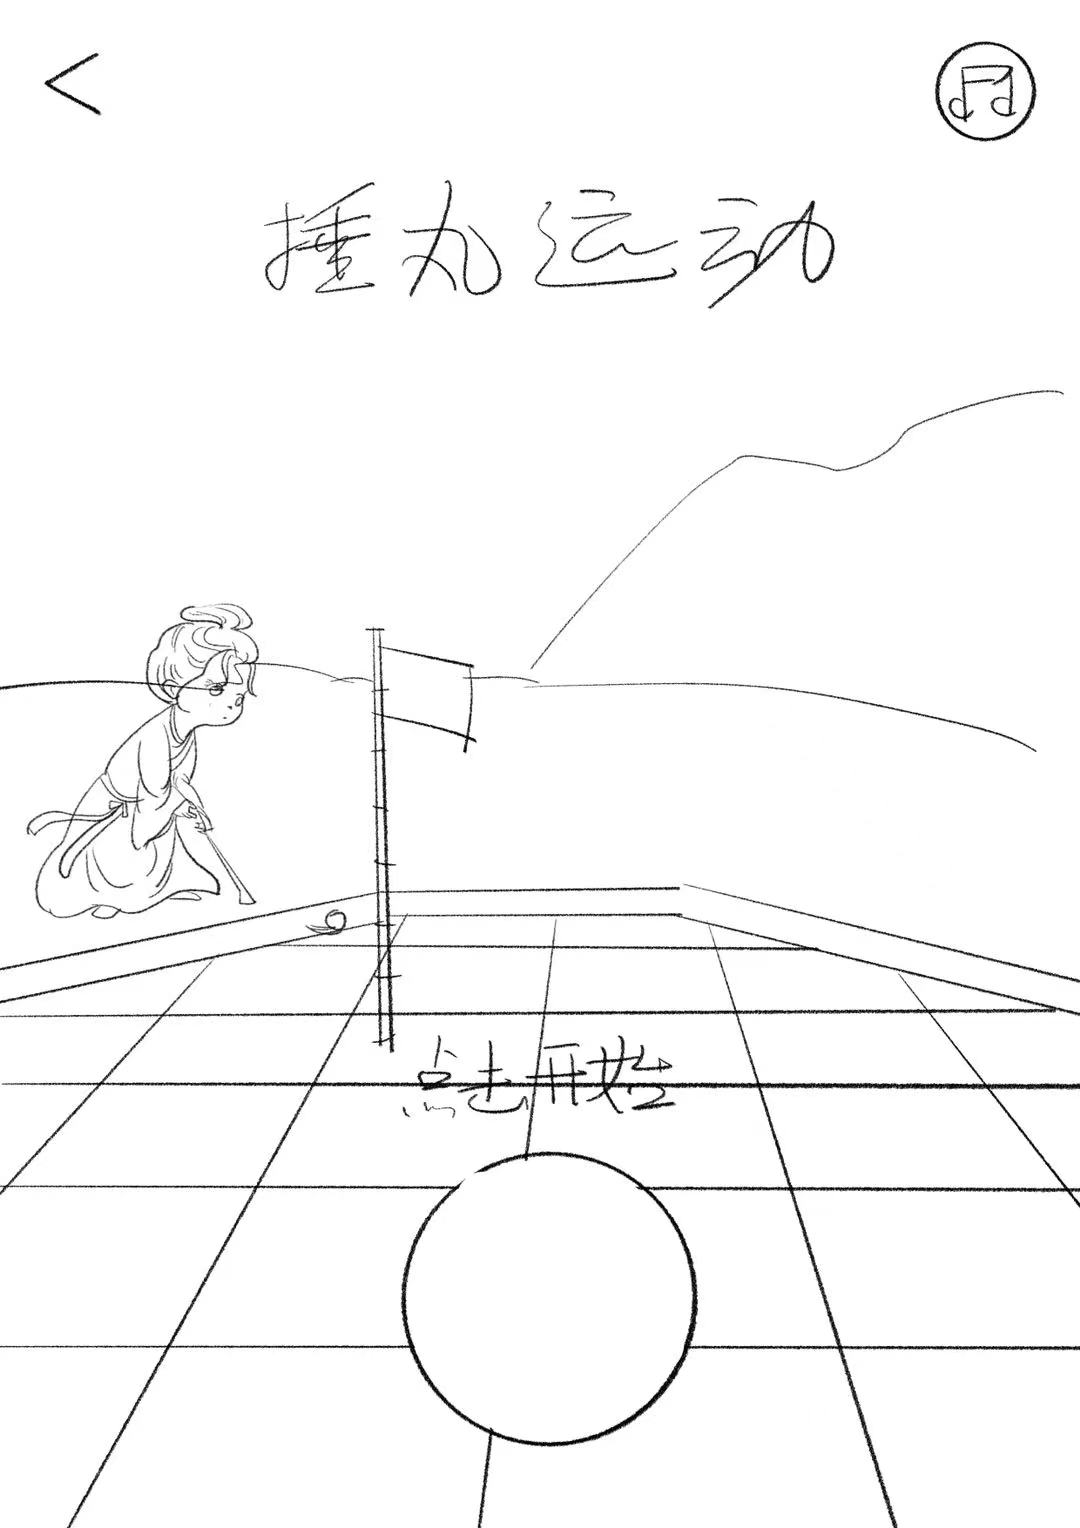 捶丸运动
点击开始